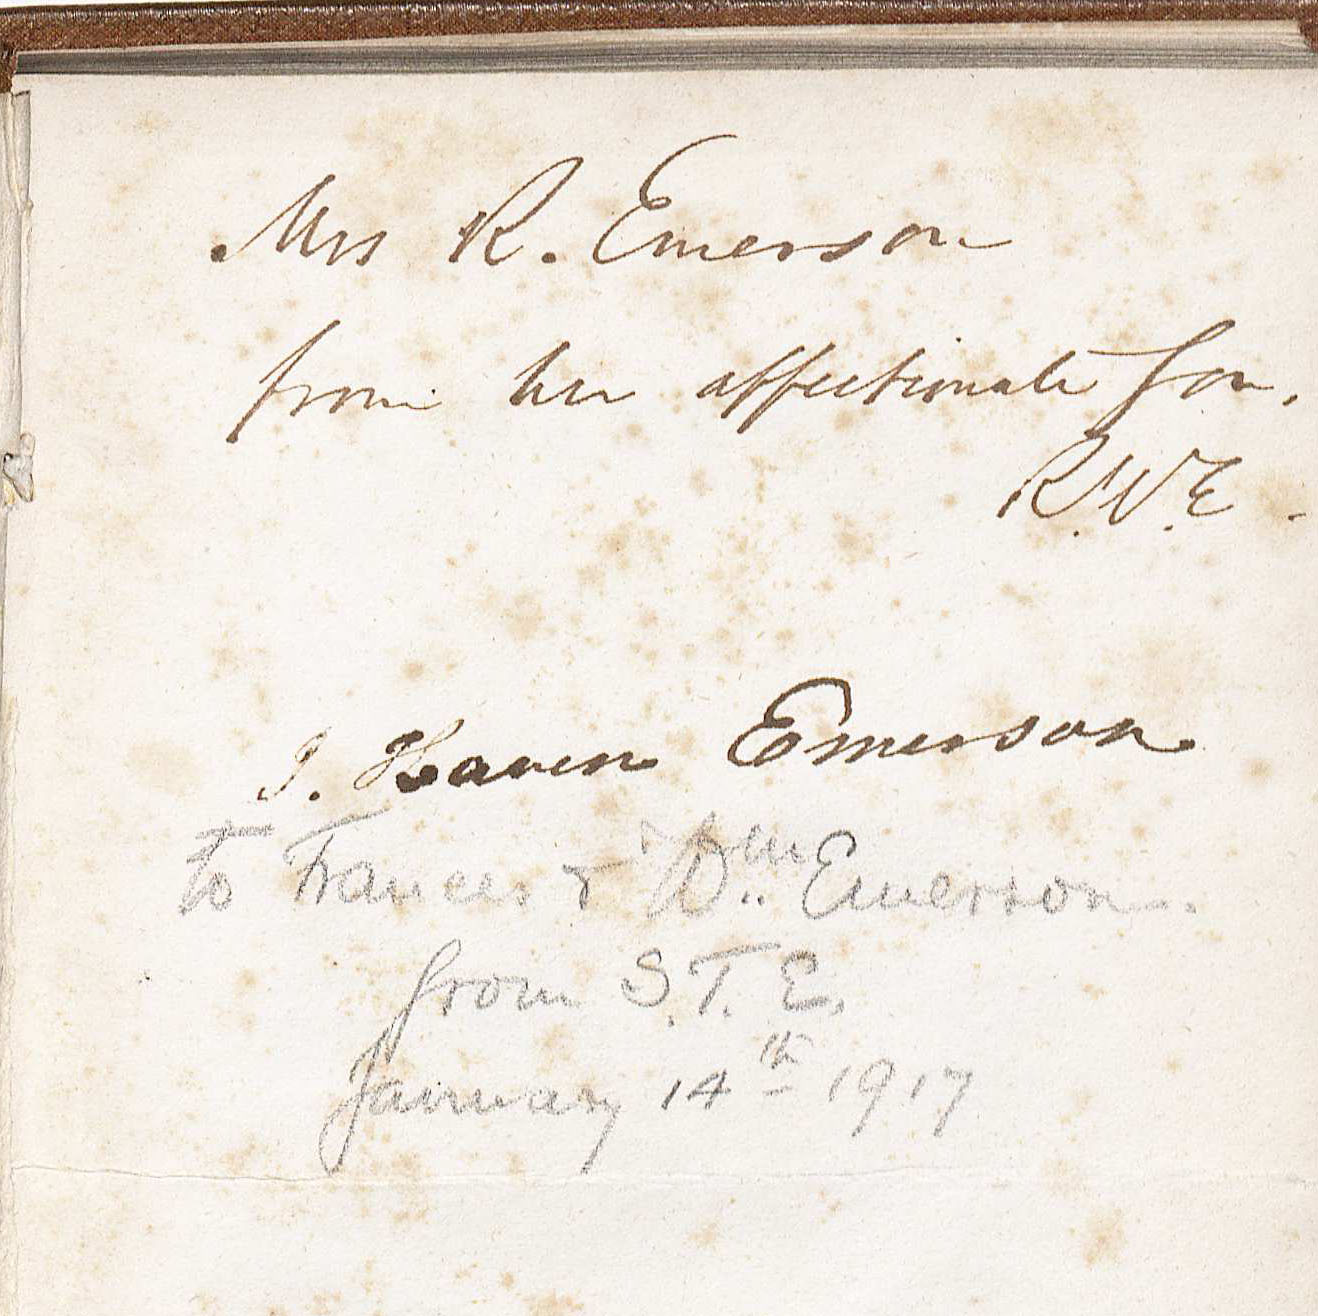 Mrs R. Emerson
from her affectionate Son.
R.W.E.
J. Haven Emerson
to Frances & Wm. Emerson.
from S.T.E.
January 14th 1917